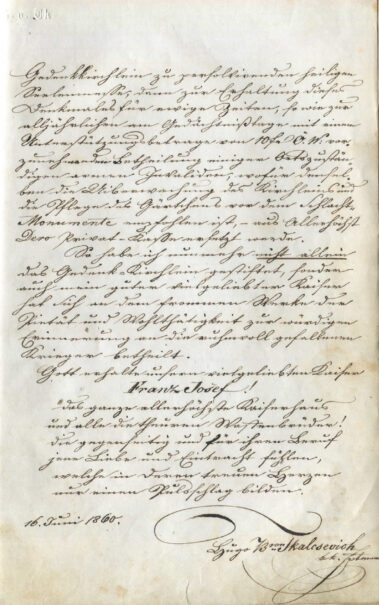 Gedenkkirchlein zu persolvirenden heiligen
Seelenmesse, dann zur Erhaltung dieses
Denkmales für ewige Zeiten, so wie zur
alljährlichen am Gedächtnißtage mit einem
Unterstützungsbetrage von 10 fr. Ö. W. vor-
zunehmenden Betheilung einiger Ortszustän-
digen armen Invaliden, wofür densel-
ben die Überwachung des Kirchleins und
die Pflege des Gärtchens vor dem Schlacht-
Monumente empfohlen ist, aus Allerhöchst
Dero Privat-Kasse ersetzt werde.
So habe ich nunmehr nicht allein
das Gedenk-Kirchlein gestiftet, sondern
auch mein guter vielgeliebter Kaiser
hat sich an dem frommen Werke der
Pietät und Wohlthätigkeit zur würdigen
Erinnerung an die ruhmvoll gefallenen
Krieger betheilt.
Gott erhalte unsern vielgeliebten Kaiser
Franz Josef!
das ganze allerhöchste Kaiserhaus
und alle die theuren Waffenbrüder!
die gegenseitig und für ihren Beruf
jene Liebe und Eintracht fühlen,
welche in deren treuen Herzen
nur einen Pulsschlag bilden.
16. Juni 1860.
Hugo Bron Skalesevich